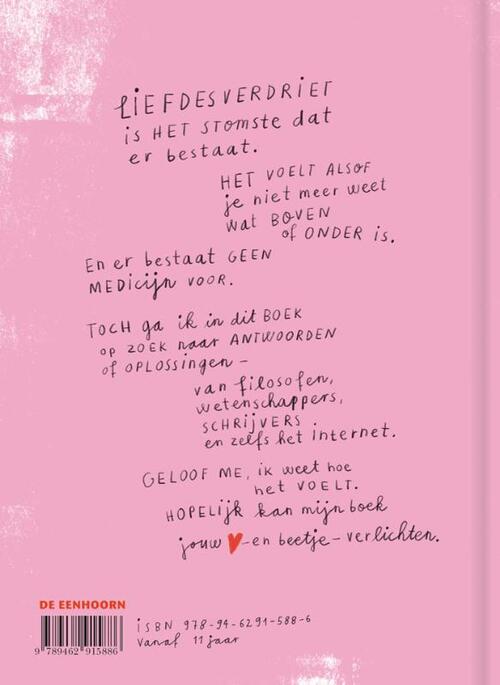 LIEFDESVERDRIET
is HET STOMSTE dat
er bestaat.
HET VOELT ALSOF
je niet meer weet
wat BOVEN
of ONDER is.
En er bestaat GEEN
MEDicijn VOOR.
TOCH ga ik in dit BOEK
op ZOEK naar ANTWOORDEN
of OPLOSSINGEN –
van filosofen,
wetenschappers,
SCHRIJVERS
en zelfs het internet.
GELOOF ME, ik weet hoe
het VOELT.
HOPELIJK kan mijn boek
jouw ♥-en beetje-verlichten.
DE EENHOORN
ISBN 978-94-6291-588-6
vanaf 11 jaar
9 789462 915886